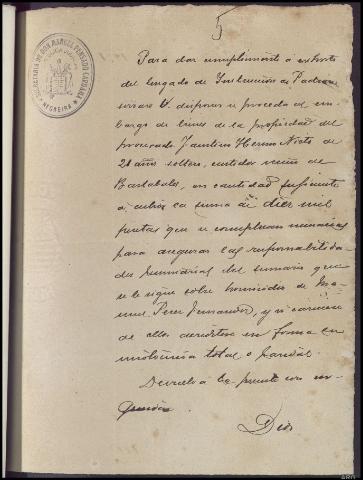 5
SECRETARIA DE DON MANUEL PENSADO CARBIA
NEGREIRA
Para dar cumplimiento a exhorto
del Juzgado de Instrucción de Padron
sirvase V. disponer se proceda al em-
bargo de bienes de la propiedad del
procesado Faustino Hermo Nieto de
21 años soltero, curtidor vecino de
Bastabales, en cantidad suficiente
á cubrir la suma de diez mil
pesetas que se consideran necesarias
para asegurar las responsabilida
des pecuniarias del sumario que
se le sigue sobre homicidio de Ma-
nuel Perez Fernandez, y si careciese
de ellos acredítese en forma su
insolvencia total o parcial.
Devuelva la presente con
Dios